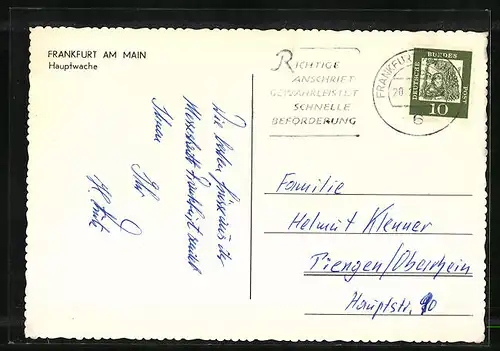 FRANKFURT AM MAIN
Hauptwache
RICHTIGE
ANSCHRIFT
GEWÄHRLEISTET
SCHNELLE
BEFÖRDERUNG
FRANKFUR
20
6
DEUTSCHE BUNDES POST
10
Die besten Grüsse aus der
Messestadt Frankfurt sendet
Ihnen
Ihr
Familie
Helmut Klenner
Tiengen/Oberrhein
Hauptstr. 90